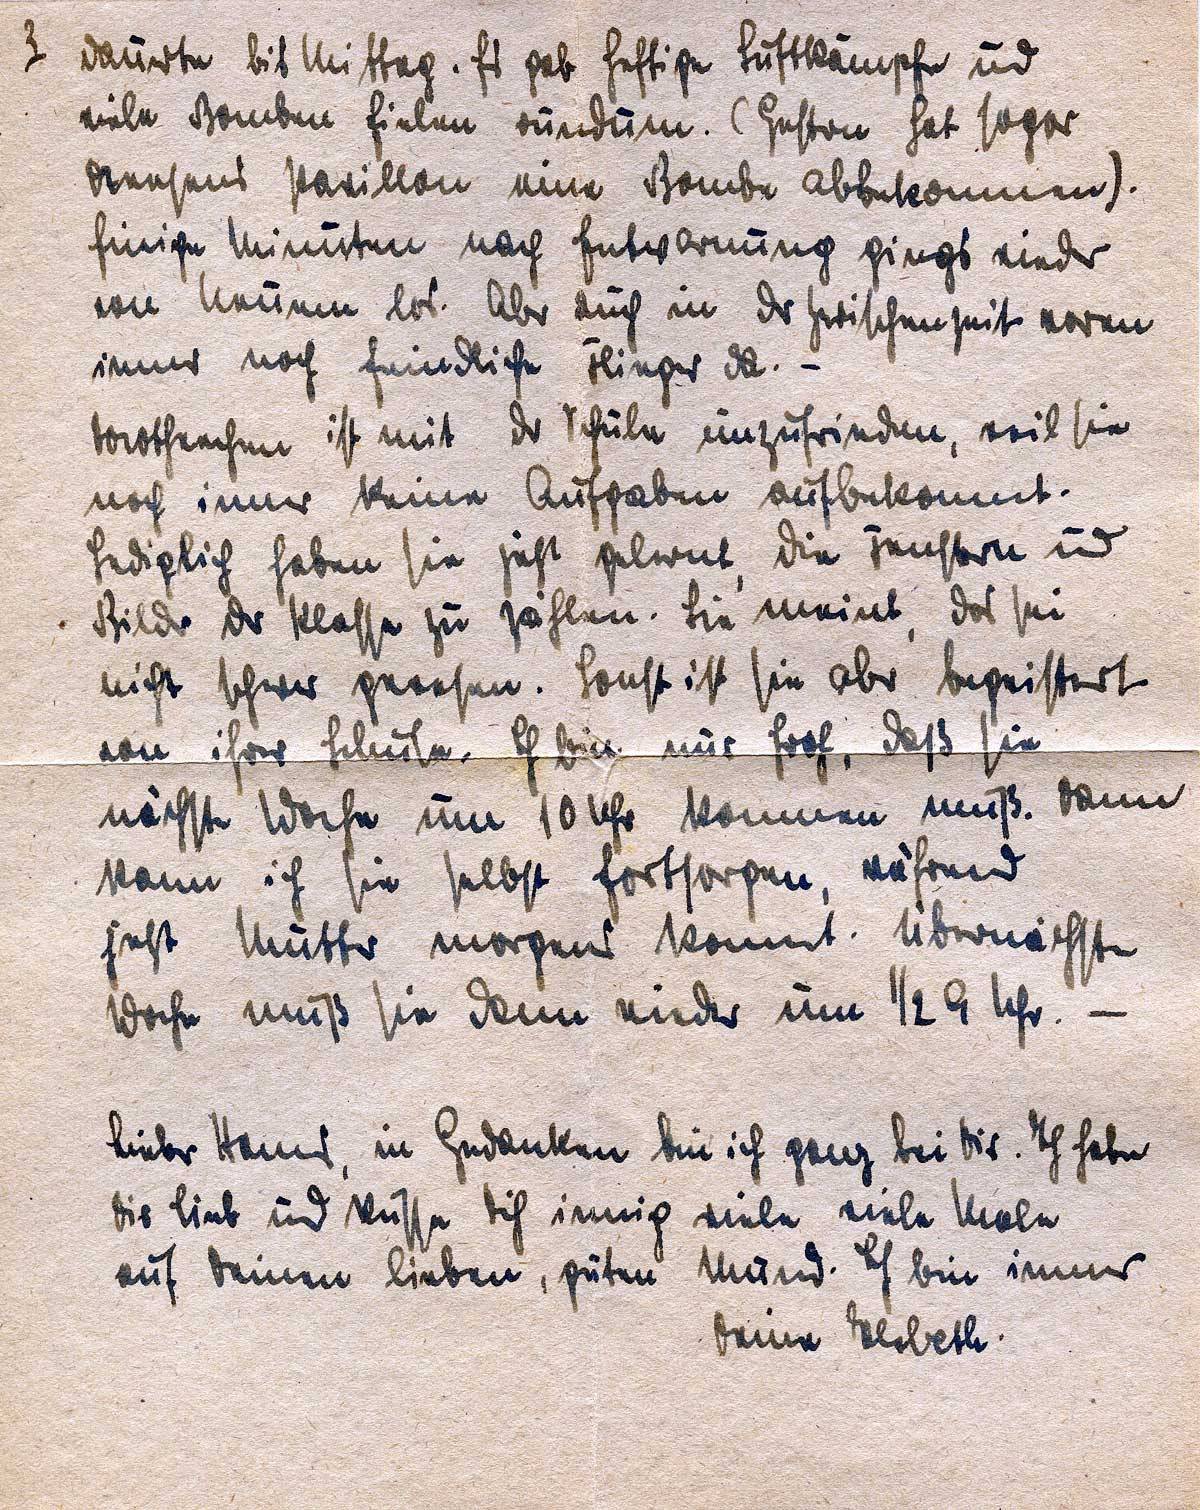 3
dauerte bis Mittag. Es gab heftige Luftkämpfe und
viele Bomben fielen rundum. (Gestern hat sogar
Pavillon eine Bombe abbekommen).
Einige Minuten nach Entwarnung gings wieder
von Neuem los. Aber auch in der Zwischenzeit waren
immer noch feindliche Flieger da. –
Dorotheechen ist mit der Schule unzufrieden, weil sie
noch immer keine Aufgaben aufbekommt.
Lediglich haben sie jetzt gelernt, die Fenstern und
Bilder der Klasse zu zählen. Sie meint, das sei
nicht schwer gewesen. Sonst ist sie aber begeistert
von ihrer Schule. Ich bin nur froh, daß sie
nächste Woche um 10 Uhr kommen muß. Dann
kann ich sie selbst fortsorgen, während
jetzt Mutter morgens kommt. Übernächste
Woche muß sie dann wieder um 1/2 9 Uhr. —
Lieber Hans, in Gedanken bin ich ganz bei Dir. Ich habe
Dir lieb und küsse Dich innig viele viele Male
auf Deinen lieben, guten Mund. Ich bin immer
Deine Elsbeth.